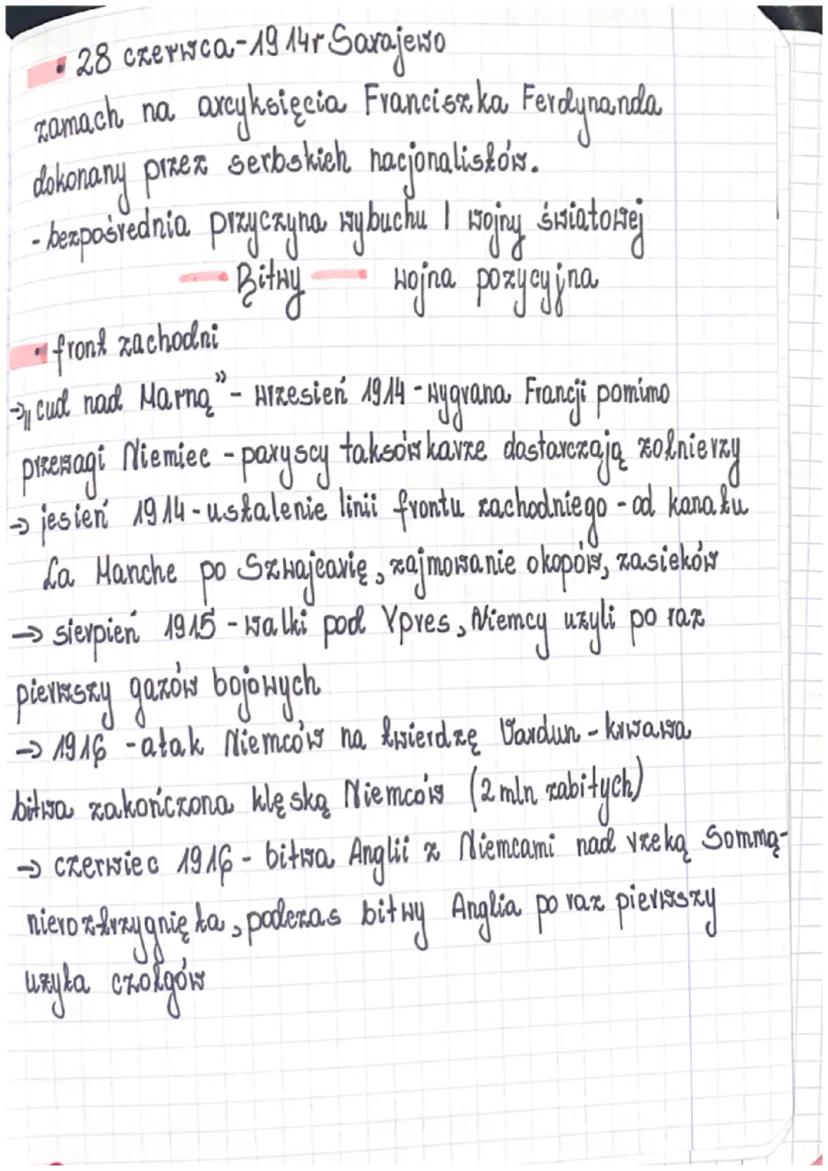 • 28 czerwca-1914r Sarajewo
zamach na arcyksięcia Franciszka Ferdynanda
dokonany przez serbskich nacjonalistów.
- bezpośrednia przyczyna wybuchu I wojny światowej
- Bitwy - wojna pozycyjna
• front zachodni
→ „cud nad Marną” - wrzesień 1914 - wygrana Francji pomimo
przewagi Niemiec - paryscy taksówkarze dostarczają żołnierzy
→ jesień 1914 - ustalenie linii frontu zachodniego - od kanału
La Manche po Szwajcarię, zajmowanie okopów, zasieków
→ sierpień 1915 - walki pod Ypres, Niemcy użyli po raz
pierwszy gazów bojowych
→ 1916 - atak Niemców na twierdzę Vardun - krwawa
bitwa zakończona klęską Niemców (2 mln zabitych)
→ czerwiec 1916 - bitwa Anglii z Niemcami nad rzeką Sommą-
nierozstrzygnięta, podczas bitwy Anglia po raz pierwszy
użyła czołgów